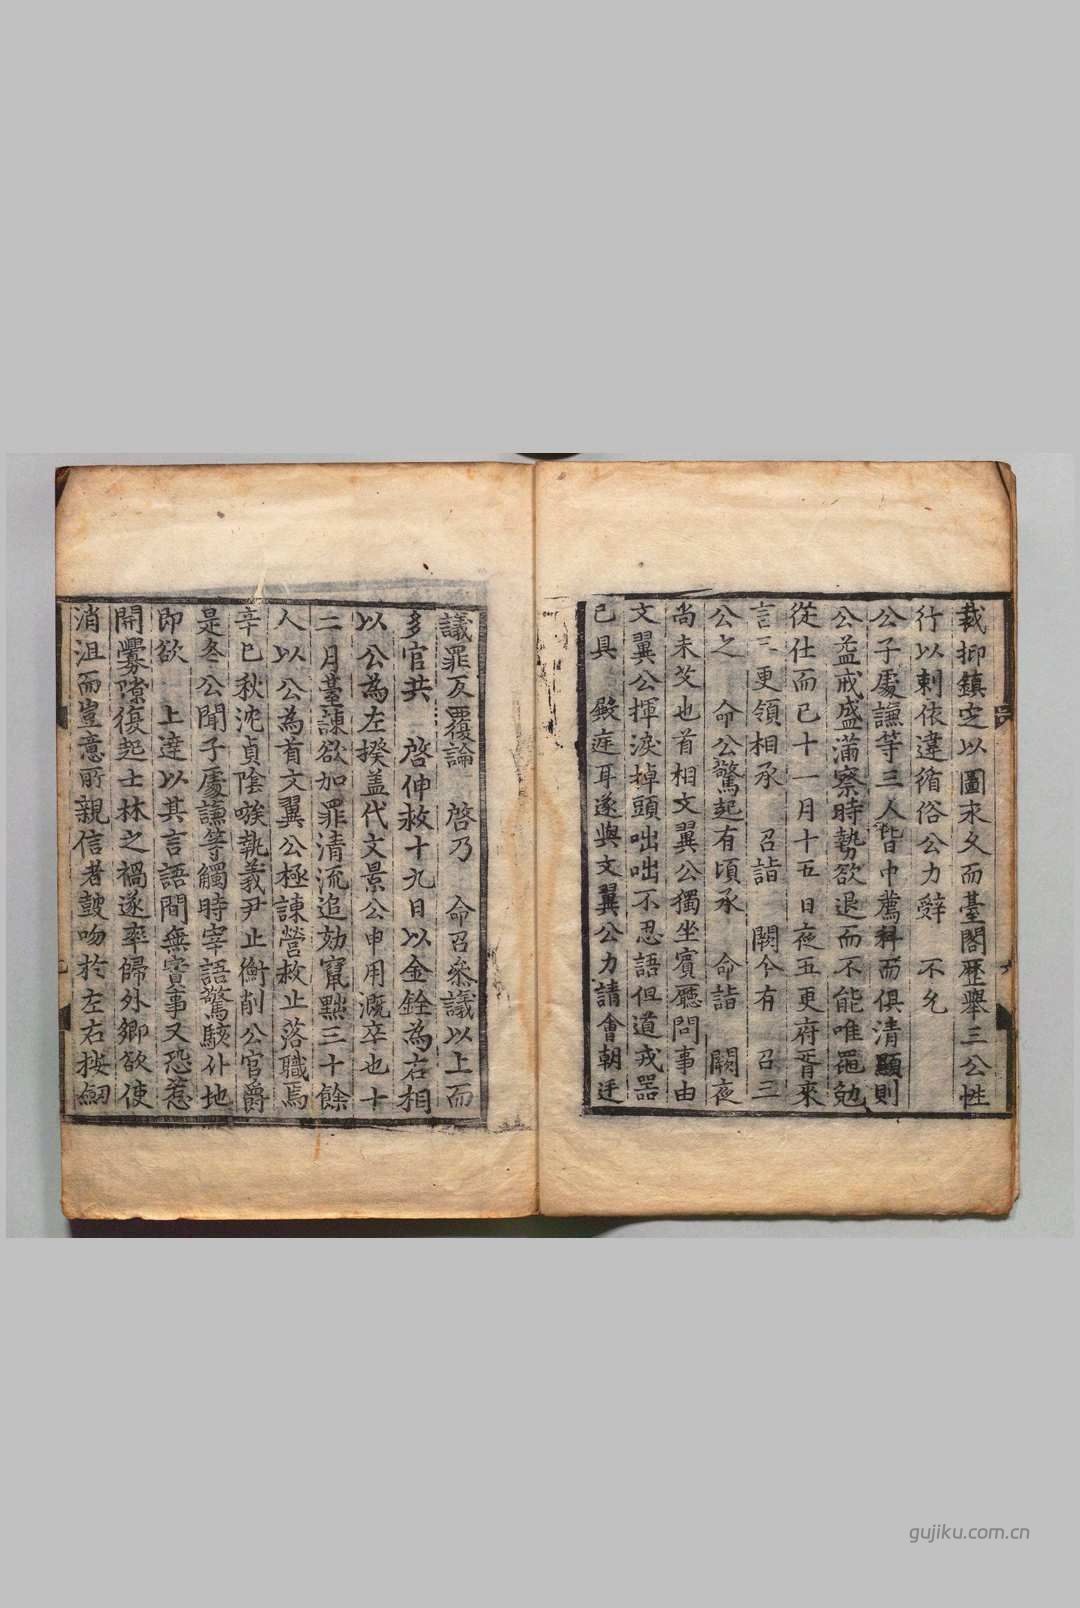 裁抑鎮定以圖永久而臺閣歷舉三公性
行以剌依違循俗公力辤　不允
公子處謙等三人皆中薦科而俱清顯則
公益戒盛滿察時勢欲退而不能唯黽勉
從仕而已十一月十五日夜五更府胥來
言三更領相承　召詣　闕今有　召三
公之　命公驚起有頃承　命詣　闕夜
尚未艾也首相文翼公獨坐賓廳問事由
文翼公揮淚掉頭咄咄不忍語但道戎器
已具　殿庭耳遂與文翼公力請會朝廷
議罪反覆論　啓乃　命召叅議以上而
多官共　啓伸救十九日以金銓為右相
以公為左揆盖代文景公申用溉卒也十
二月臺諫欲加罪清流追劾竄黜三十餘
人以公為首文翼公極諫營救止落職焉
辛巳秋沈貞陰嗾執義尹止衡削公官爵
是冬公聞子處謙等觸時宰語驚駭仆地
即欲　上達以其言語間無實事又恐惹
開釁隙復起士林之禍遂率歸外鄉欲使
消沮而豈意所親信者鼓吻於左右按劒
gujiku.com.cn